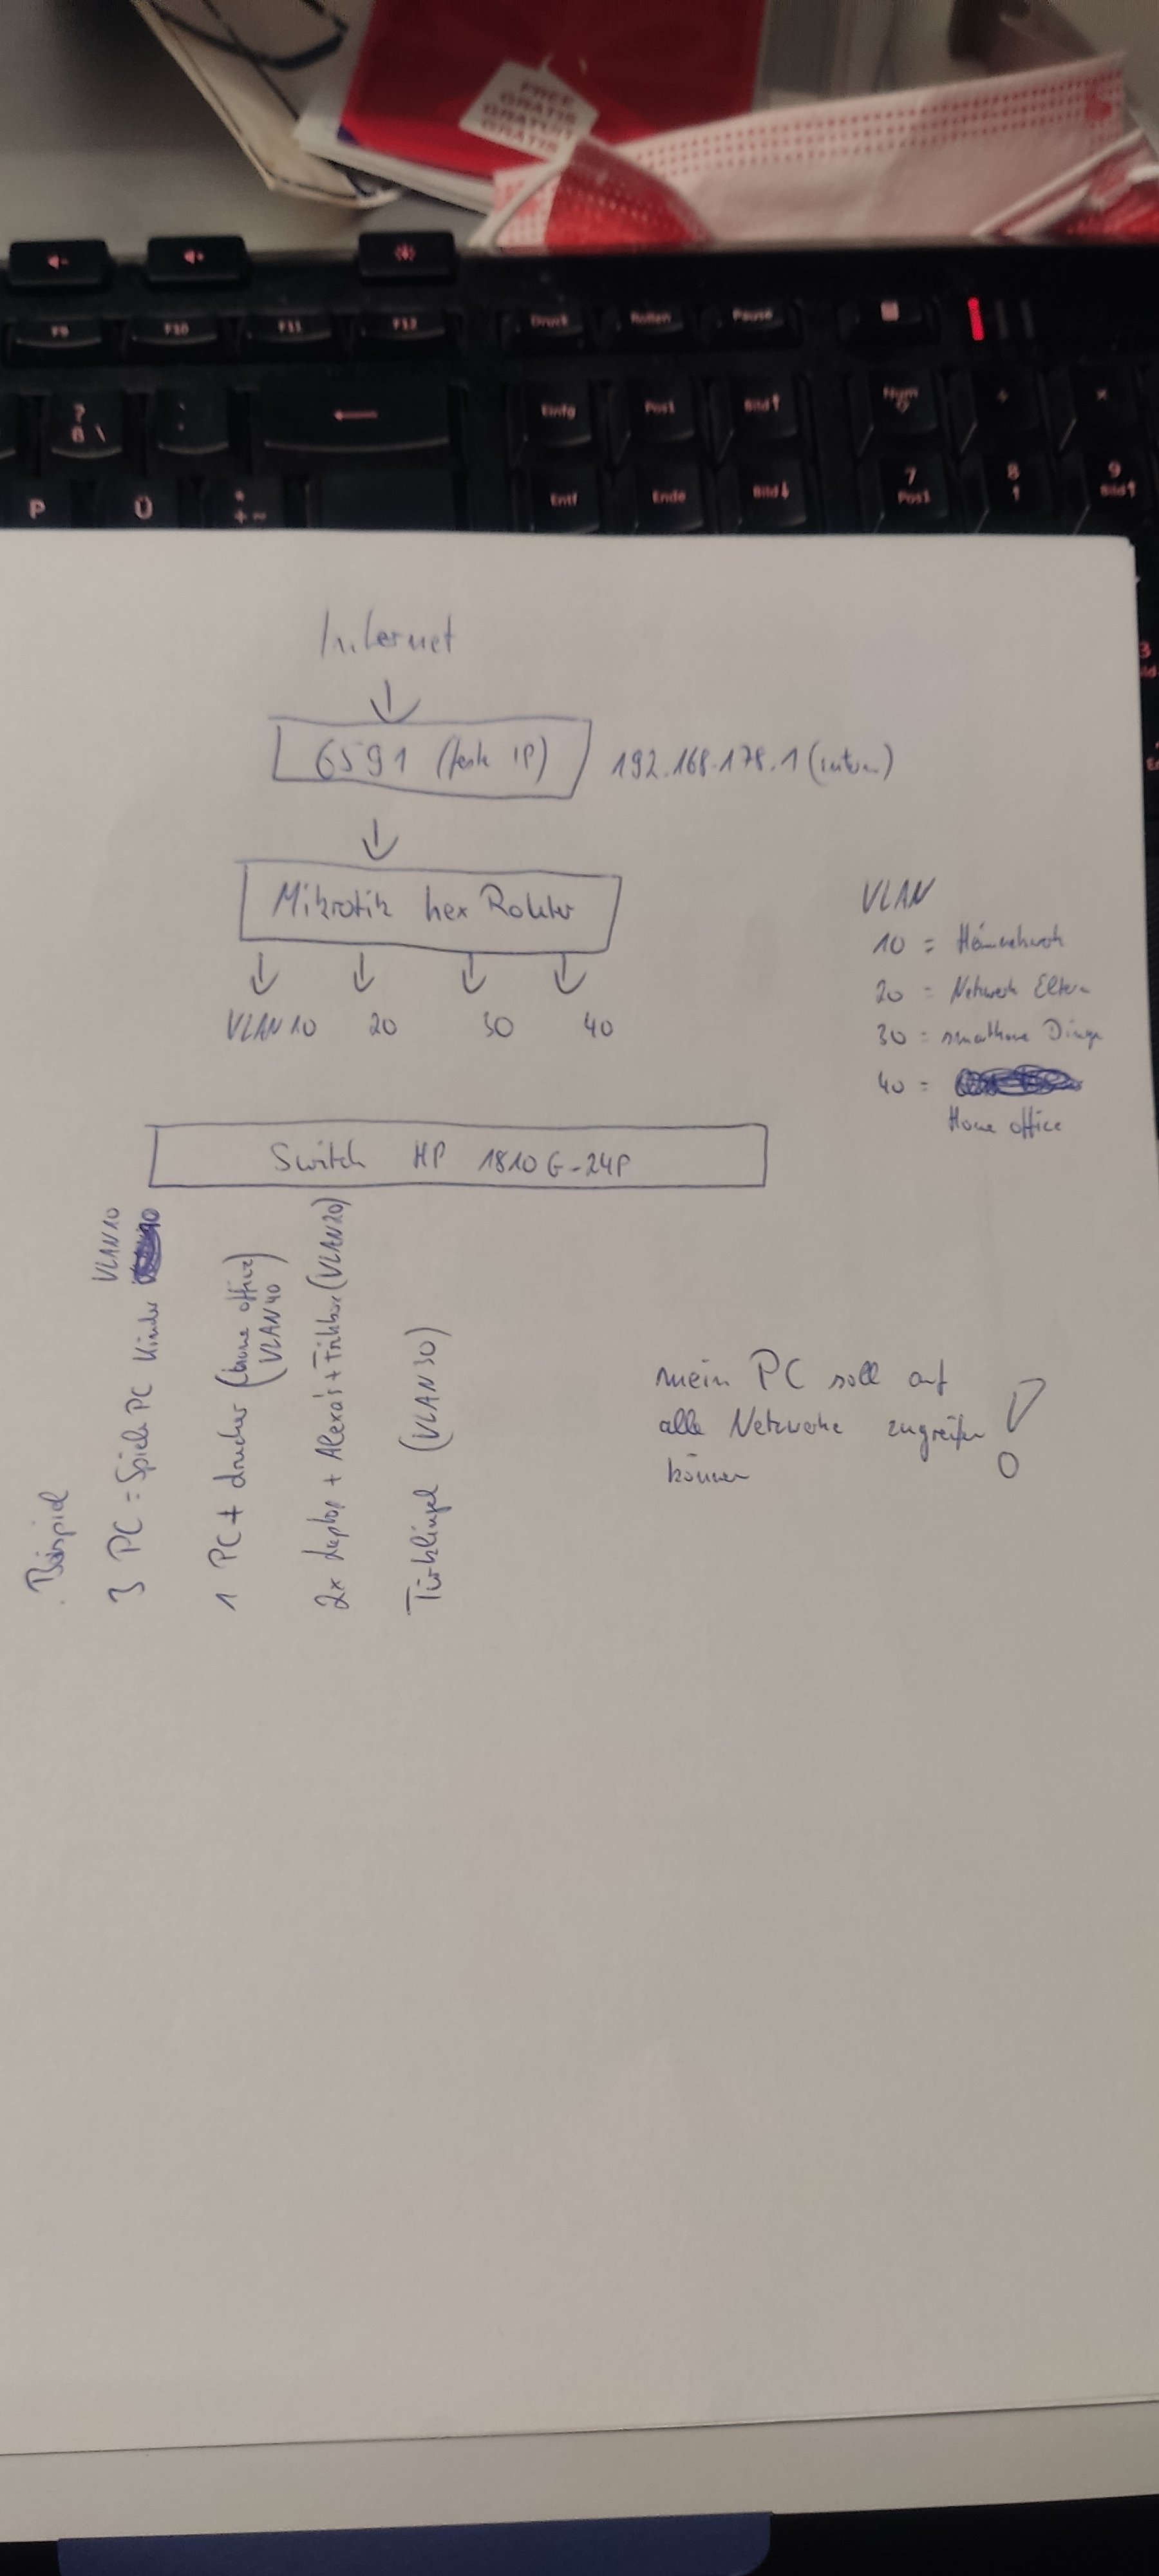 FREE
GRATIS
GRATUIT
GRATIS
F9 F10 F11 F12 Druck Rollen Pause
? ß \ ← Einfg Pos1 Bild↑ Num ÷ ×
P Ü * + ~ Entf Ende Bild↓ 7 Pos1 8 ↑ 9 Bild↑
Internet
6591 (feste IP) 192.168.178.1 (intern)
Mikrotik hex Router
VLAN 10 20 30 40
VLAN
10 = Heimnetzwerk
20 = Netzwerk Eltern
30 = smarthome Dinge
40 =
Home office
Switch HP 1810G-24P
Beispiel
3 PC = Spiele PC Kinder VLAN10
1 PC + drucker (home office)
(VLAN 40)
2x Laptop + Alexa's + Fritzbox (VLAN20)
Türklingel (VLAN 30)
mein PC soll auf
alle Netzwerke zugreifen
können !